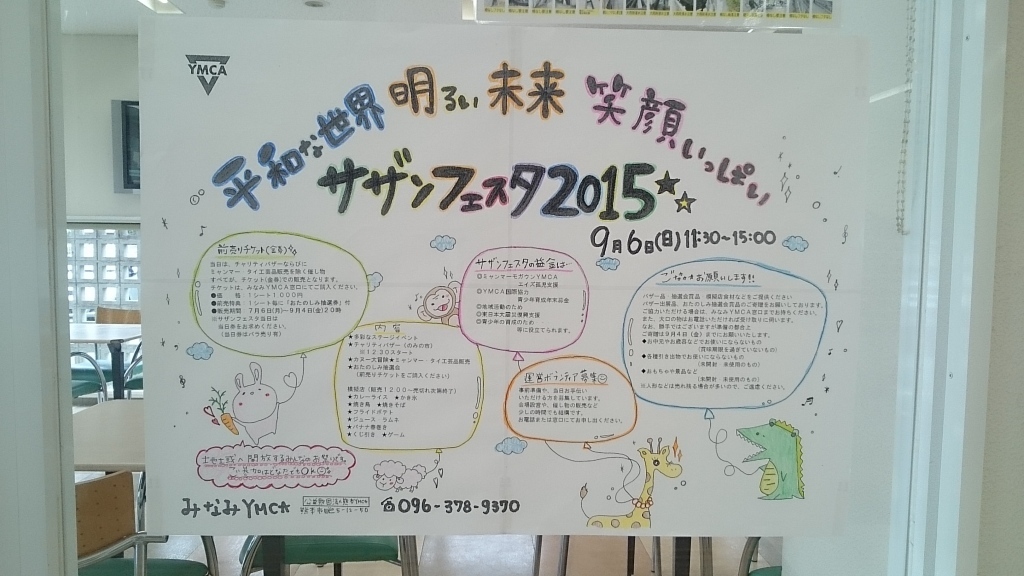 YMCA
平和な世界 明るい未来 笑顔いっぱい
サザンフェスタ2015★☆
9月6日(日)11:30~15:00
前売りチケット(金券)
当日は、チャリティバザーならびに
ミャンマー・タイ工芸品販売を除く催し物
すべてが、チケット(金券)での販売となります。
チケットは、みなみYMCA窓口にてご購入ください。
●価 格 1シート1000円
●前売特典 1シート毎に「おたのしみ抽選券」付
●販売期間 7月6日(月)~9月4日(金)20時
※サザンフェスタ当日は
当日券をお求めください。
(当日券はバラ売り有)
内容
★多彩なステージイベント
★チャリティバザー(のみの市)
※12:30スタート
★カヌー太冒険★ミャンマー・タイ工芸品販売
★おたのしみ抽選会
(前売りチケットをご購入ください)
模擬店(販売1200~売切れ次第終了)
★カレーライス ★かき氷
★焼き鳥 ★焼きそば
★フライドポテト
★ジュース ラムネ
★バナナ春巻き
★くじ引き ★ゲーム
サザンフェスタの益金は…
◎ミャンマーモガウンYMCA
エイズ孤児支援
◎YMCA国際協力
青少年育成年末募金
◎地域活動のため
◎東日本大震災復興支援
◎青少年の育成のため
等に役立てられます。
運営ボランティア募集
事前準備や、当日お手伝い
いただける方を募集しています。
会場設営や、催し物の販売など
少しの時間でも結構です。
お電話または窓口にてお申し出ください。
ご協力お願いします!!
バザー品・抽選会賞品・模擬店食材などをご提供ください
バザー出展品、おたのしみ抽選会賞品のご寄贈をお願いしております。
ご協力いただける場合は、みなみYMCA窓口までお持ちください。
また、大口の物はお電話いただければ受け取りに伺います。
なお、勝手ではございますが準備の都合上
ご寄贈は9月4日(金)までにお願いいたします。
◆お中元やお歳暮などでお使いにならないもの
(賞味期限を過ぎていないもの)
◆各種引き出物でお使いにならないもの
(未開封 未使用のもの)
◆おもちゃや景品など
(未開封 未使用のもの)
※人形などは売れ残る場合が多いので、ご遠慮ください。
地域へ開放するみんなのお祭りです
ご参加はどなたでもOK
みなみYMCA
公益財団法人熊本YMCA
☎096-378-9370